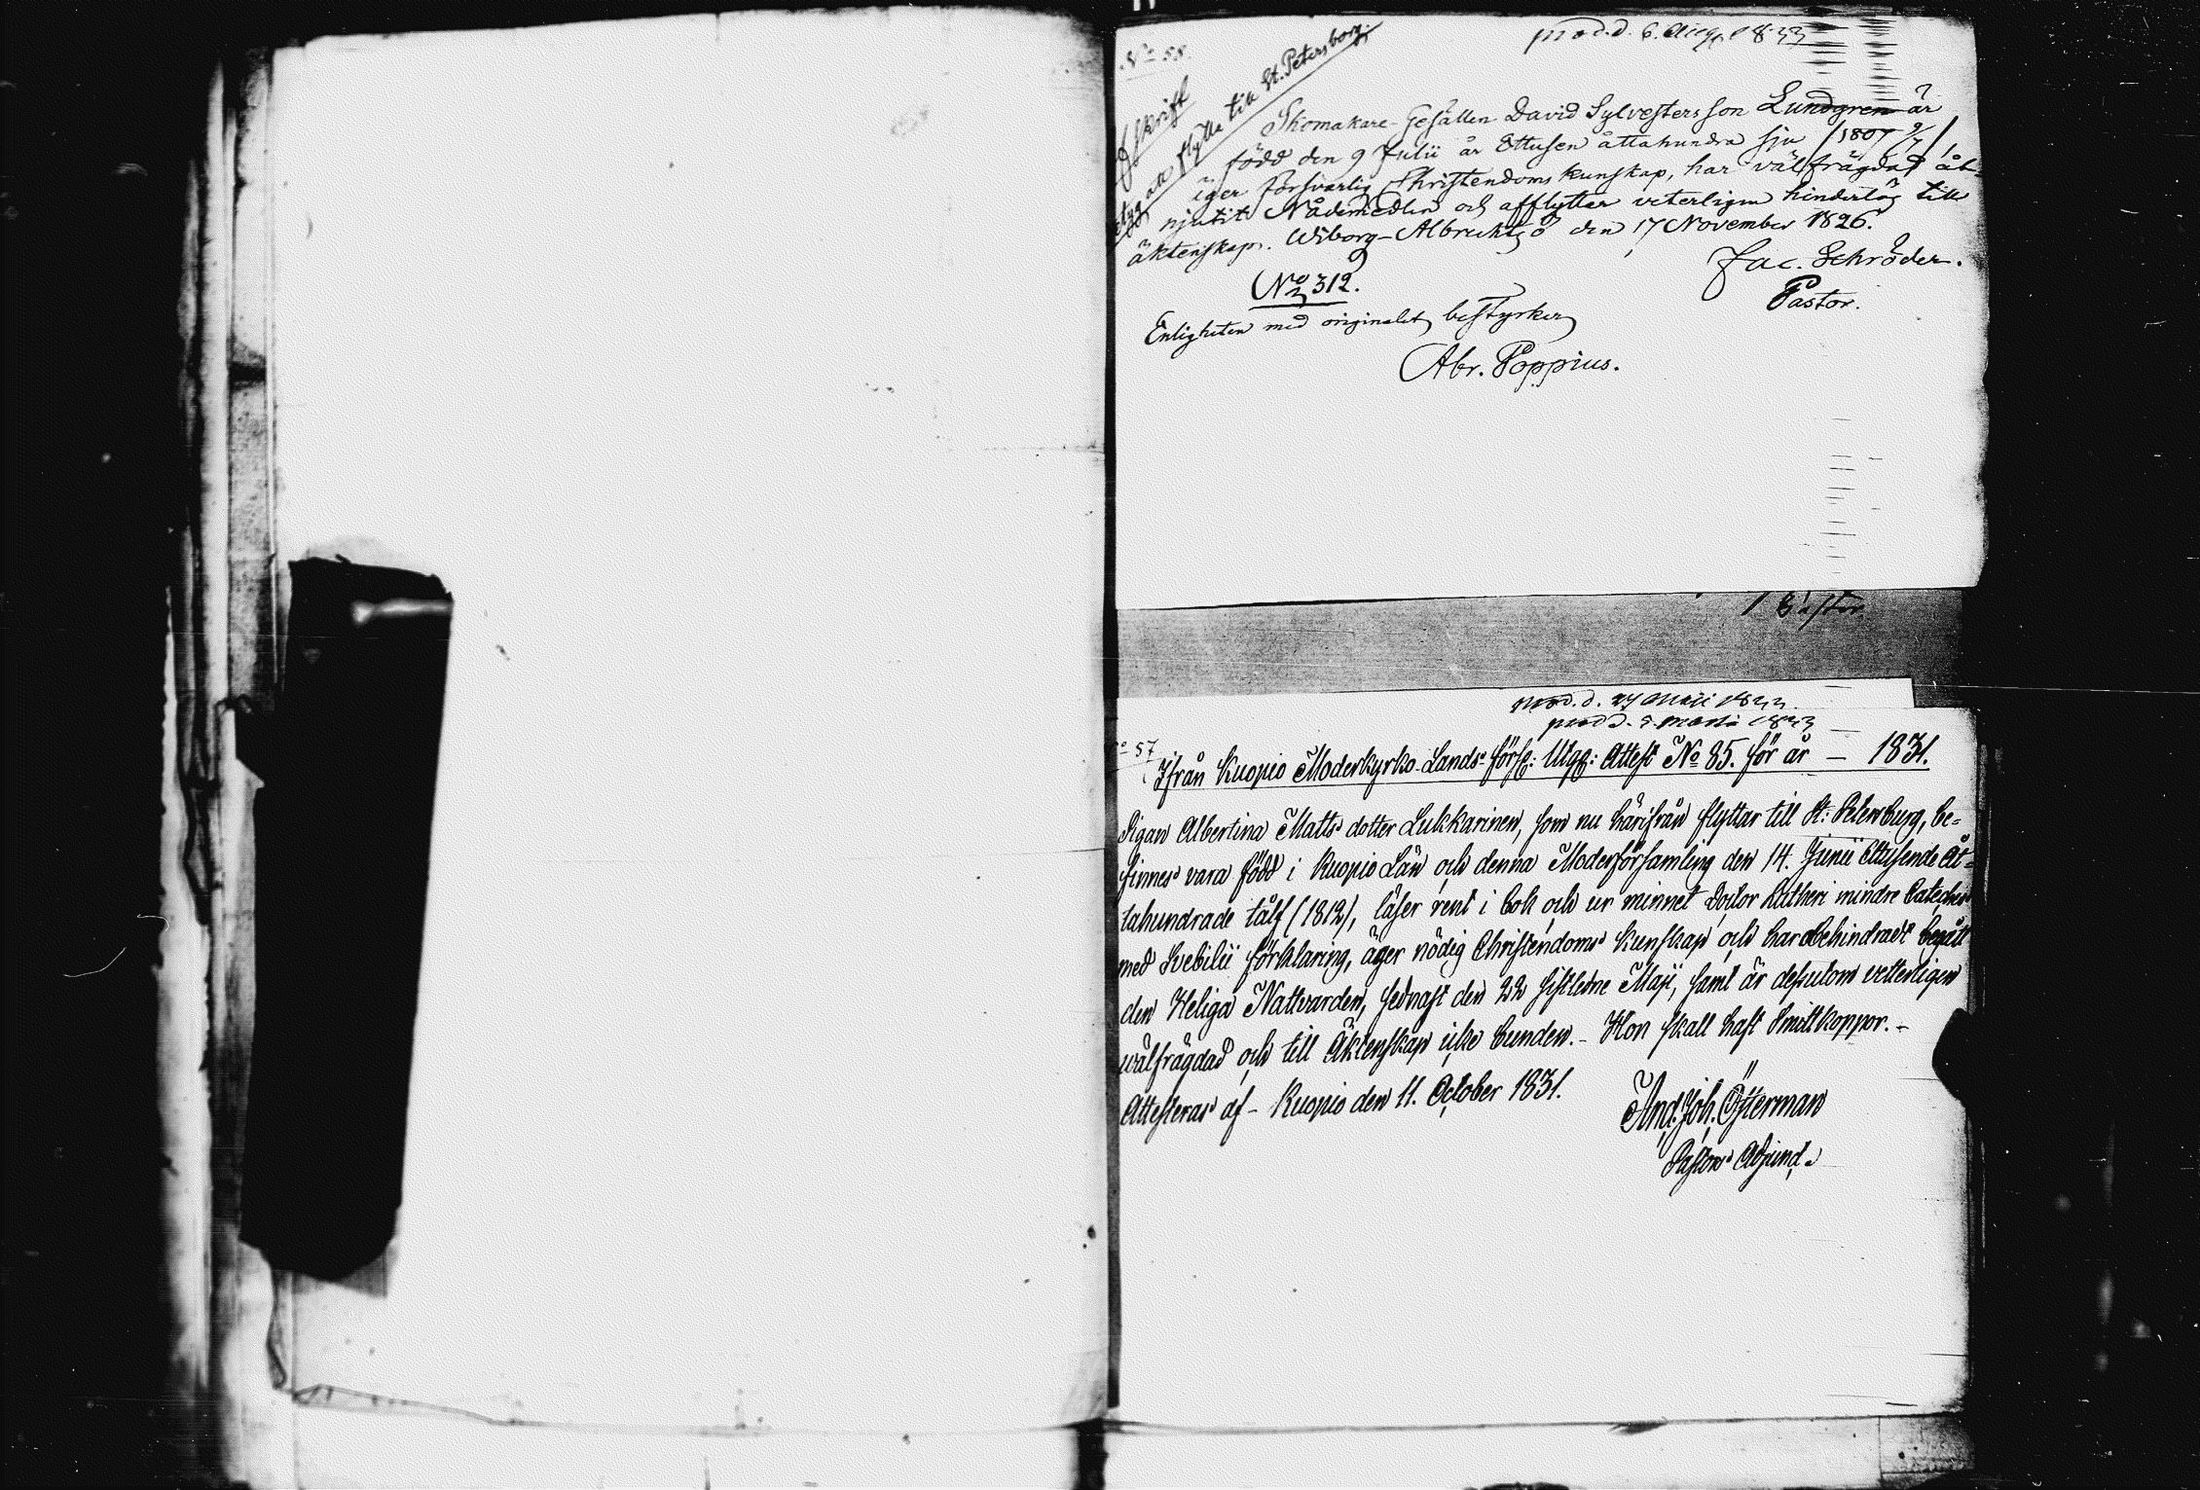 No 58.
prod. d. 6. Aug. 1833
Afskrift
att flytta till St. Petersborg
Skomakare-Gesällen David Sylvestersson Lundgren är
född den 9 Julii år Ettusen åttahundra sju /1807 9/7/
äger försvarlig Christendoms kunskap, har välfrägdad åt-
njutit Nådemedlen och afflyttar veterligen hinderlös till
äktenskap. Wiborg-Albrechtsö den 17 November 1826.
Jac. Schröder.
Pastor.
No 312.
Enligheten med originalet bestyrker
Abr. Poppius.
Pastor
prod. d. 27 Maji 1833.
prod d. 5. Martii 1833
No 57
Ifrån Kuopio Moderkyrko-Lands förs: Utgg: Attest No 85. för år — 1831.
Pigan Albertina Matts dotter Lukkarinen, som nu härifrån flyttar till St: Petersburg, be-
finnes vara född i Kuopio Län och denna Moderförsamling den 14. Junii Ettusende Åt-
tahundrade tålf (1812), läser rent i bok och ur minnet Doctor Lutheri mindre Cateches
med Svebilii förklaring, äger nödig Christendoms kunskap och har obehindradt begått
den Heliga Nattvarden, sednast den 22 sistledne Maji, samt är dessutom vetterligen
wälfrägdad och till Äktenskap icke bunden. - Hon skall haft Smittkoppor. -
Attesteras af - Kuopio den 11. October 1831.
And. Joh. Österman
Pastors Adjunct.